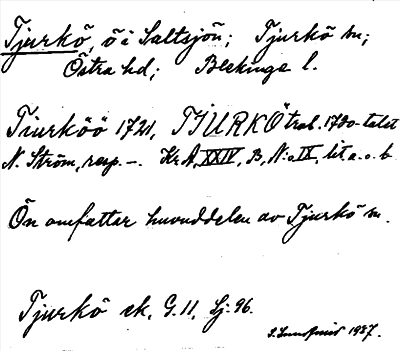 Tjurkö, ö i Saltsjön; Tjurkö sn;
Östra hd; Blekinge l.
Tiurköö 1721, TJURKÖ trol. 1700-talet
N. Ström, resp. –. Kr. A, XXIV, B, N:o IX, lit. a. o. b
Ön omfattar huvuddelen av Tjurkö sn.
Tjurkö ek. G. 11, Lj. 96.
1927.